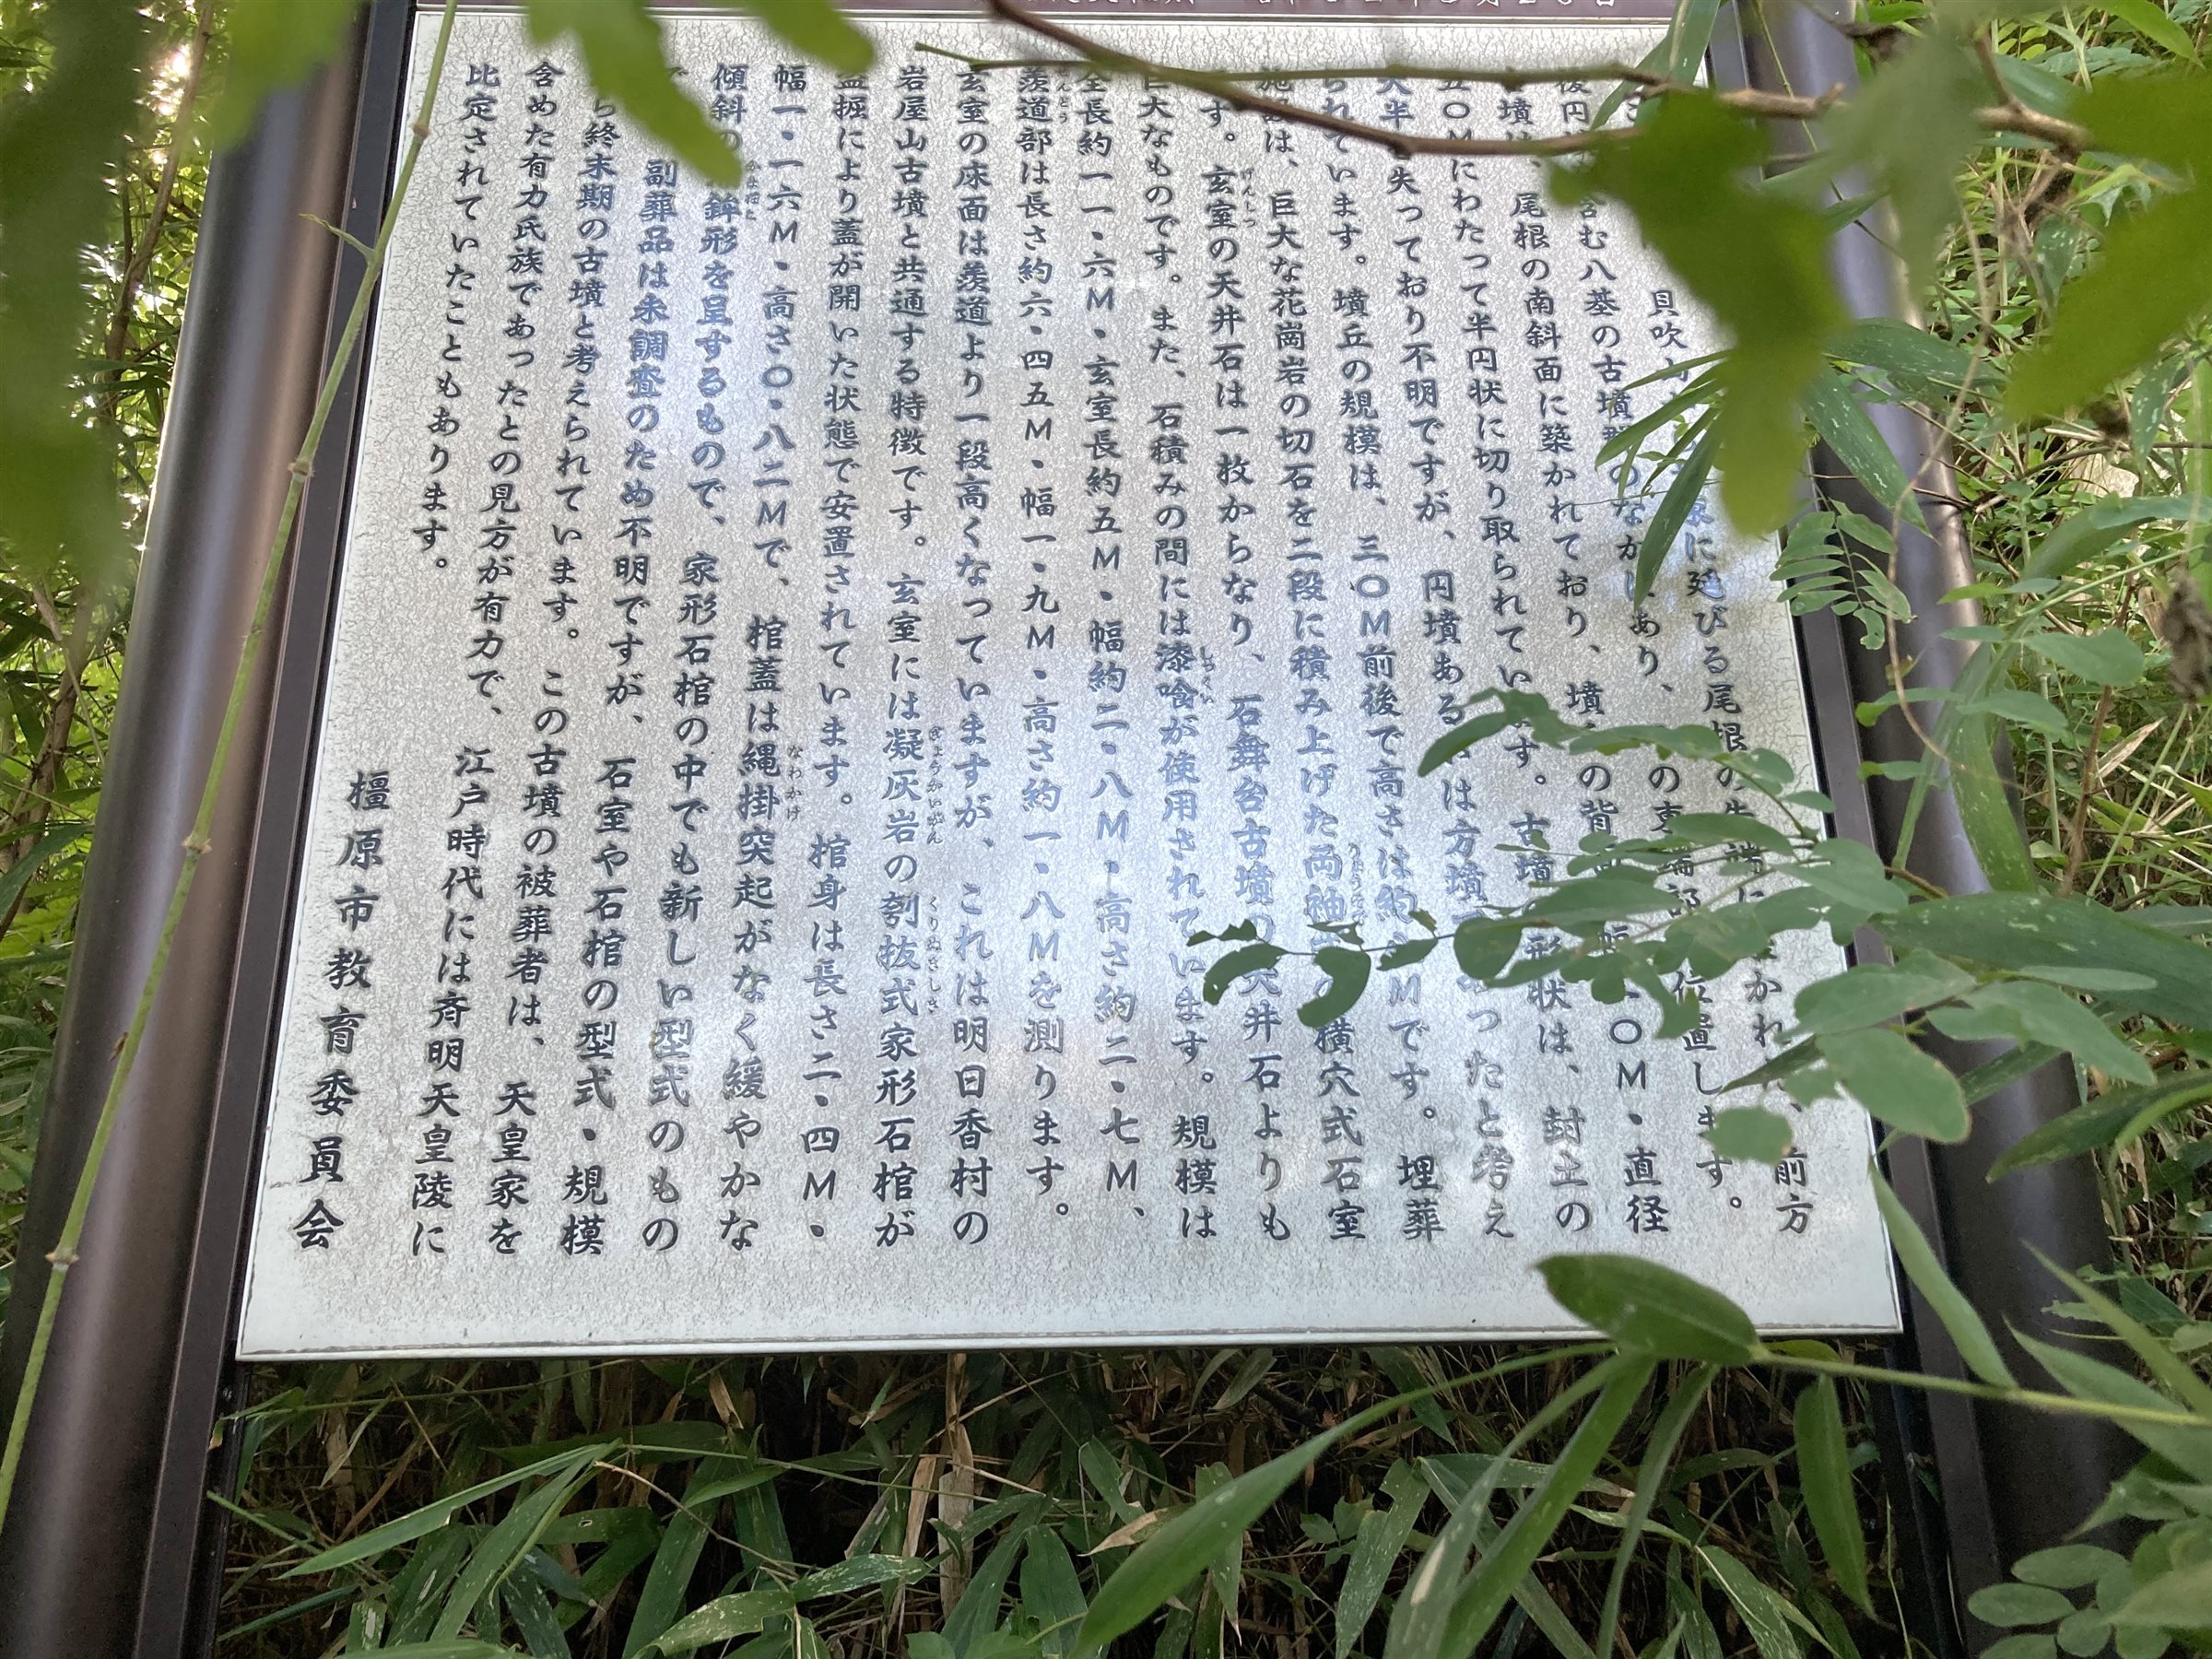 貝吹
に延びる尾根の先端に かれ 、前方
後円 含む八基の古墳群のなかにあり、 の東端部 位置します。
墳は、尾根の南斜面に築かれており、墳 の背 幅 〇M・直径
五〇Mにわたって半円状に切り取られてい す。古墳 形状は、封土の
大半 失っており不明ですが、円墳ある は方墳 あったと考え
られています。墳丘の規模は、三〇M前後で高さは約 Mです。埋葬
は、巨大な花崗岩の切石を二段に積み上げた両袖 横穴式石室
す。玄室の天井石は一枚からなり、石舞台古墳の天井石よりも
巨大なものです。また、石積みの間には漆喰が使用されています。規模は
全長約一一・六M・玄室長約五M・幅約二・八M・高さ約二・七M、
羨道部は長さ約六・四五M・幅一・九M・高さ約一・八Mを測ります。
玄室の床面は羨道より一段高くなっていますが、これは明日香村の
岩屋山古墳と共通する特徴です。玄室には凝灰岩の刳抜式家形石棺が
盗掘により蓋が開いた状態で安置されています。棺身は長さ二・四M・
幅一・一六M・高さ〇・八二Mで、棺蓋は縄掛突起がなく緩やかな
傾斜の 鉾形を呈するもので、家形石棺の中でも新しい型式のもの
で 副葬品は未調査のため不明ですが、石室や石棺の型式・規模
ら終末期の古墳と考えられています。この古墳の被葬者は、天皇家を
含めた有力氏族であったとの見方が有力で、江戸時代には斉明天皇陵に
比定されていたこともあります。
橿原市教育委員会